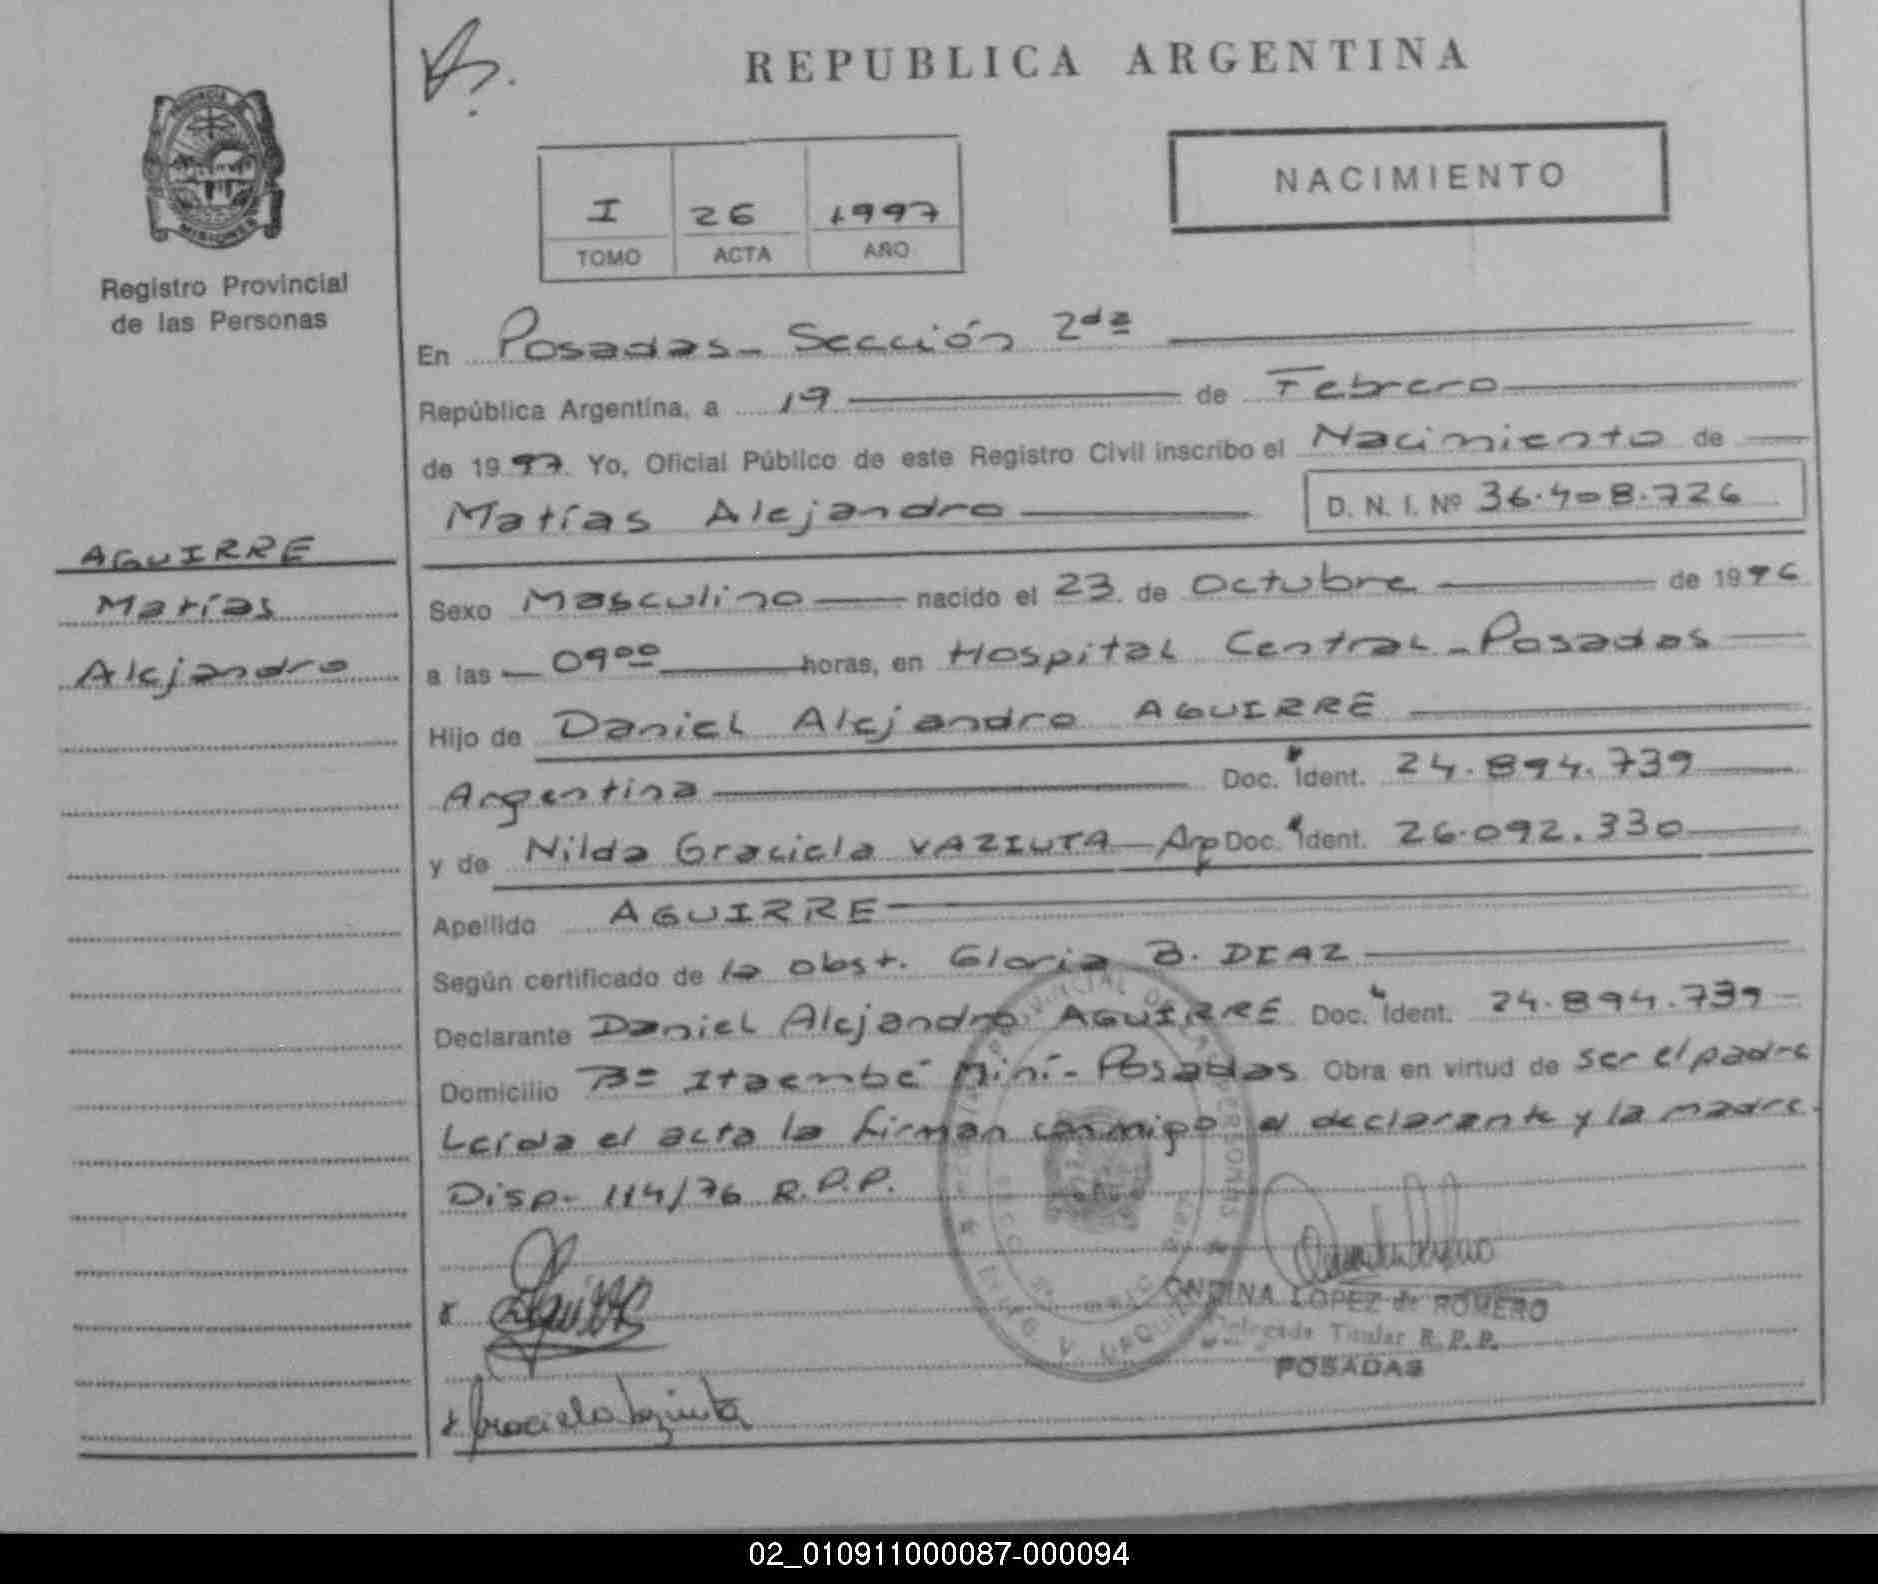 REPUBLICA ARGENTINA
NACIMIENTO
I 26 1997
TOMO ACTA AÑO
PROVINCIA DE
MISIONES
Registro Provincial
de las Personas
AGUIRRE
Matías
Alejandro
En Posadas - Sección 2da
República Argentina, a 19 de Febrero
de 1997. Yo, Oficial Público de este Registro Civil inscribo el Nacimiento de
Matías Alejandro D. N. I. Nº 36.408.726
Sexo Masculino nacido el 23 de Octubre de 1996
a las 09 00 horas, en Hospital Central - Posadas
Hijo de Daniel Alejandro AGUIRRE
Argentina Doc. Ident. 24.894.739
y de Nilda Graciela VAZIUTA - Arg Doc. Ident. 26.092.330
Apellido AGUIRRE
Según certificado de la obst. Gloria B. DIAZ
Declarante Daniel Alejandro AGUIRRE Doc. Ident. 24.894.739
Domicilio Bº Itaembé Miní - Posadas Obra en virtud de ser el padre
Leída el acta la firman conmigo el declarante y la madre.
Disp. 114/76 R.P.P.
ONDINA LOPEZ de ROMERO
Delegada Titular R.P.P.
POSADAS
Graciela Vaziuta
02_010911000087-000094